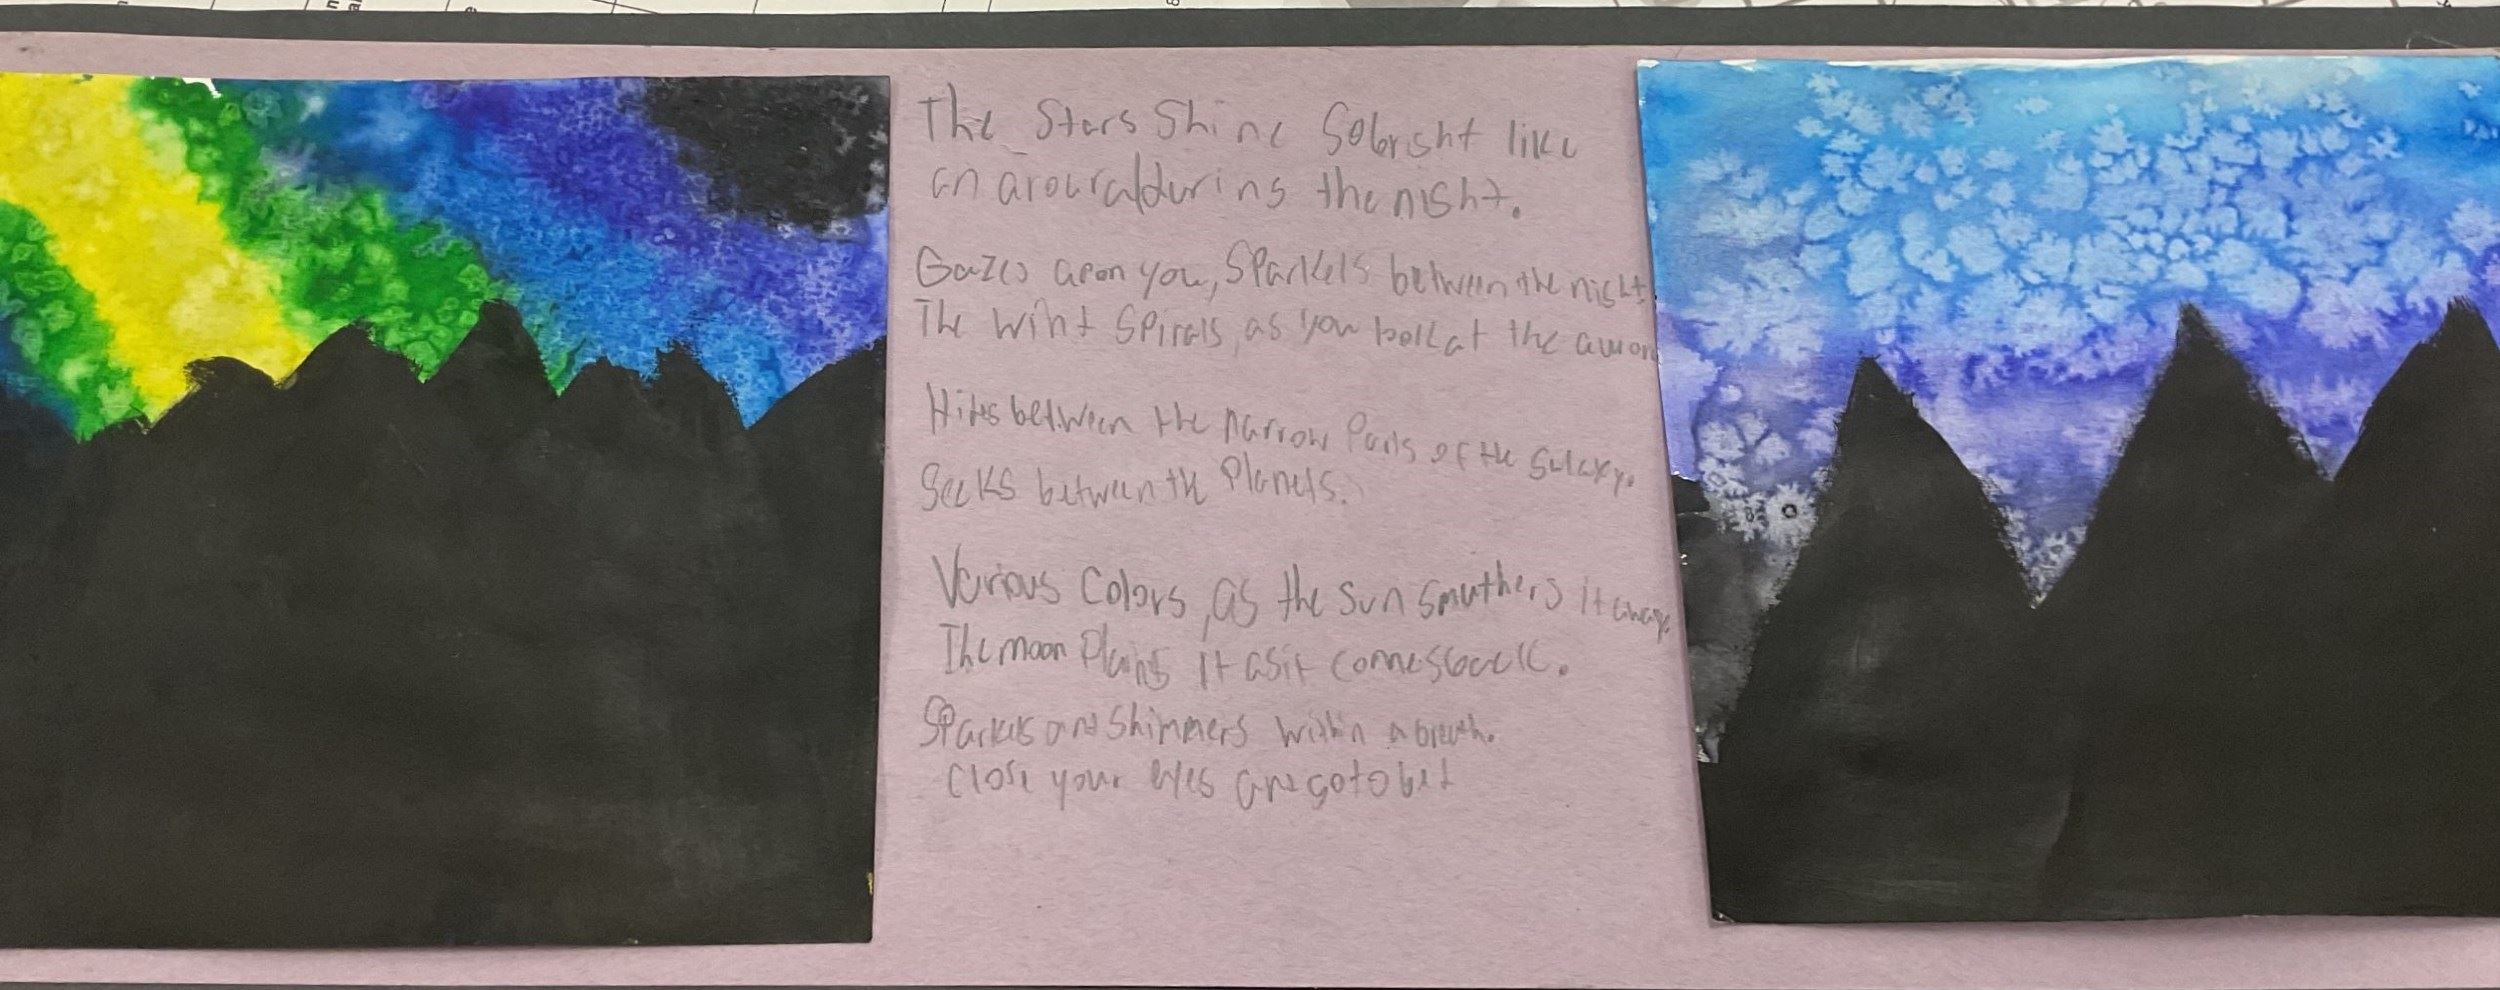 The Stars Shine So bright like
an aroura during the night.
Gazes apon you, Sparkels between the night
The wint Spirals, as you look at the auror
Hides between the narrow Parts of the Galaxy.
Seeks between the Planets.
Various Colors, as the Sun Smuthers it away.
The moon Plants it as it comes back.
Sparkels and Shimmers within a breath.
Close your eyes and go to bed